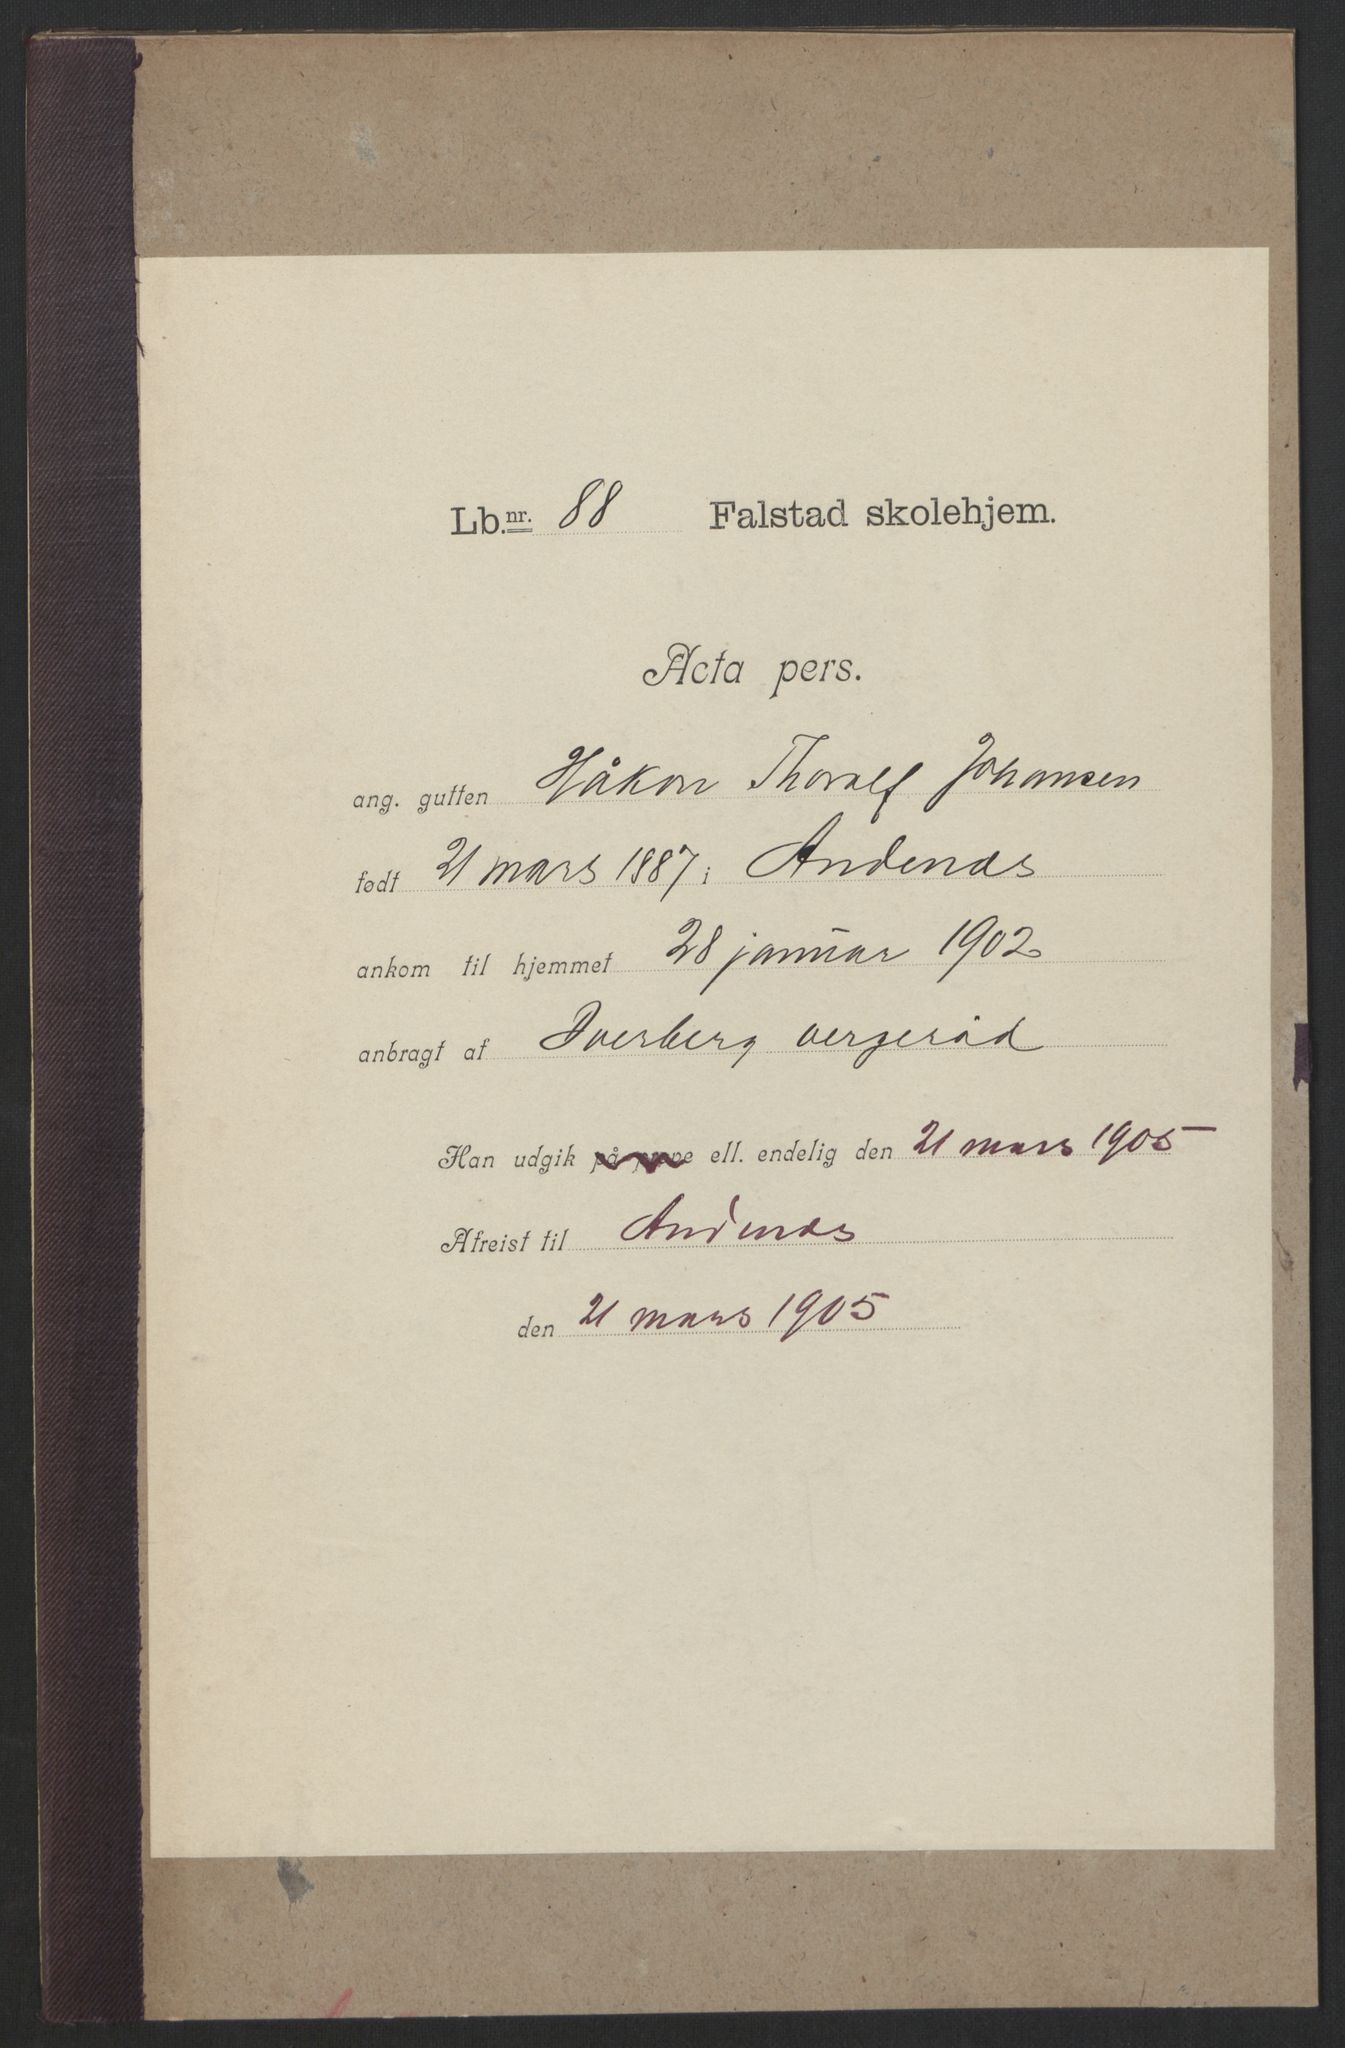 Lb.nr. 88 Falstad skolehjem.
Acta pers.
ang. gutten Håkon Thoralf Johansen
født 21 mars 1887 i Andenæs
ankom til hjemmet 28 januar 1902
anbragt af Dverberg vergeråd
Han udgik på prøve ell. endelig den 21 mars 1905
Afreist til Andenæs
den 21 mars 1905